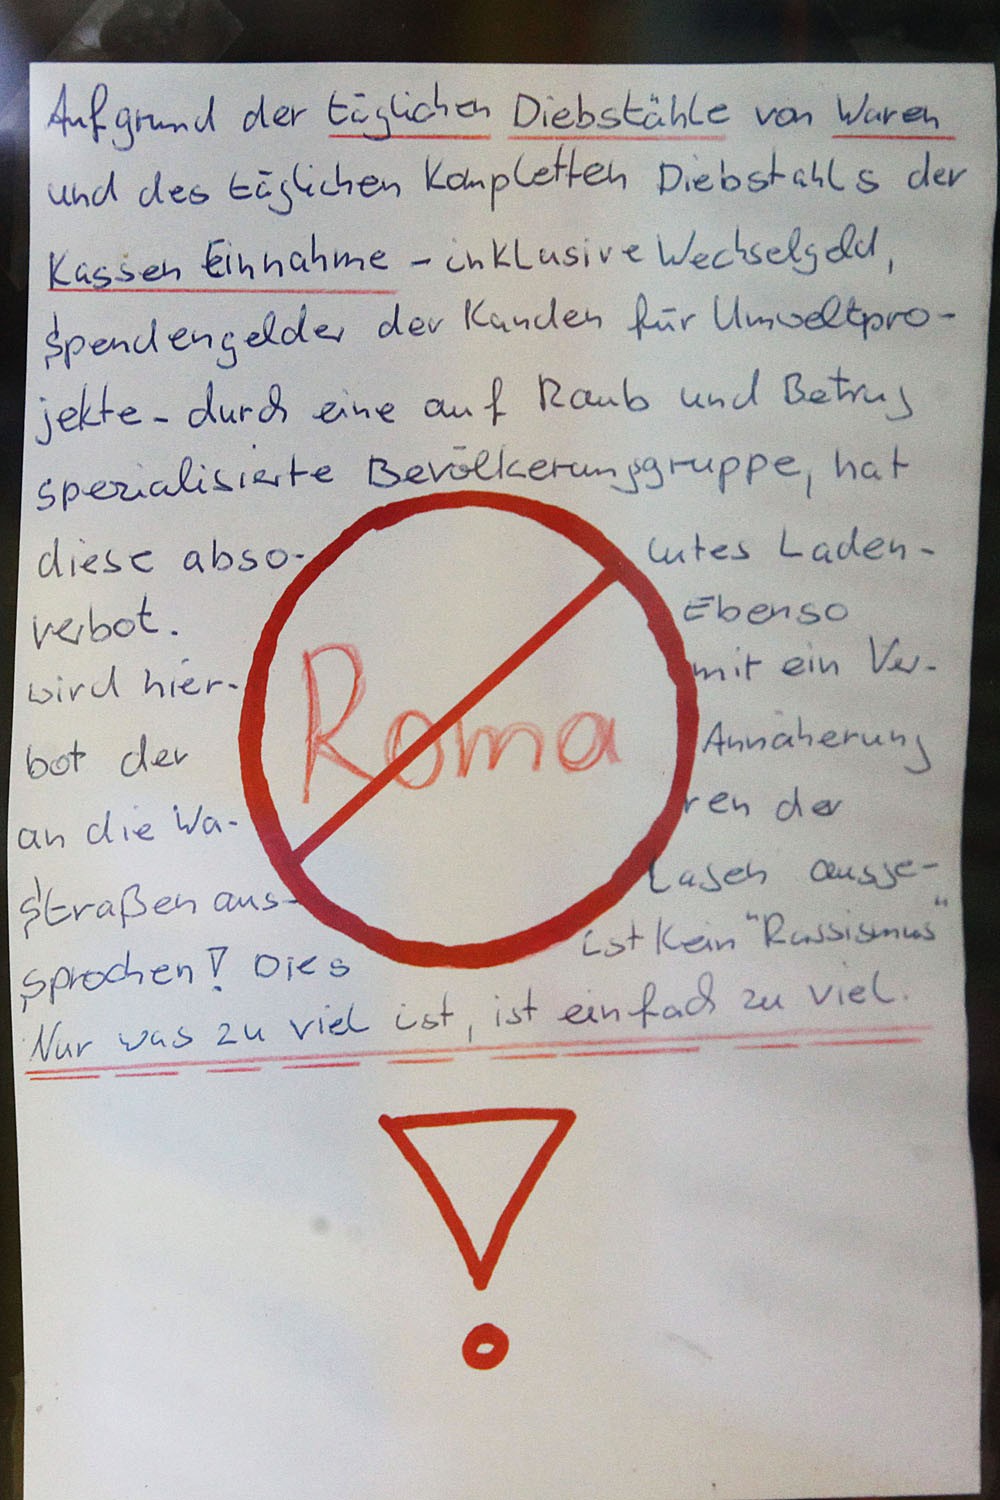 Aufgrund der täglichen Diebstähle von Waren
und des täglichen Kompletten Diebstahls der
Kassen Einnahme - inklusive Wechselgeld,
Spendengelder der Kunden für Umweltpro-
jekte - durch eine auf Raub und Betrug
spezialisierte Bevölkerungsgruppe, hat
diese abso- lutes Laden-
verbot. Ebenso
wird hier- mit ein Ver-
bot der Annäherung
Roma
an die Wa- ren der
Straßen aus- lagen ausge-
sprochen! Dies ist kein "Rassismus"
Nur was zu viel ist, ist einfach zu viel.
!